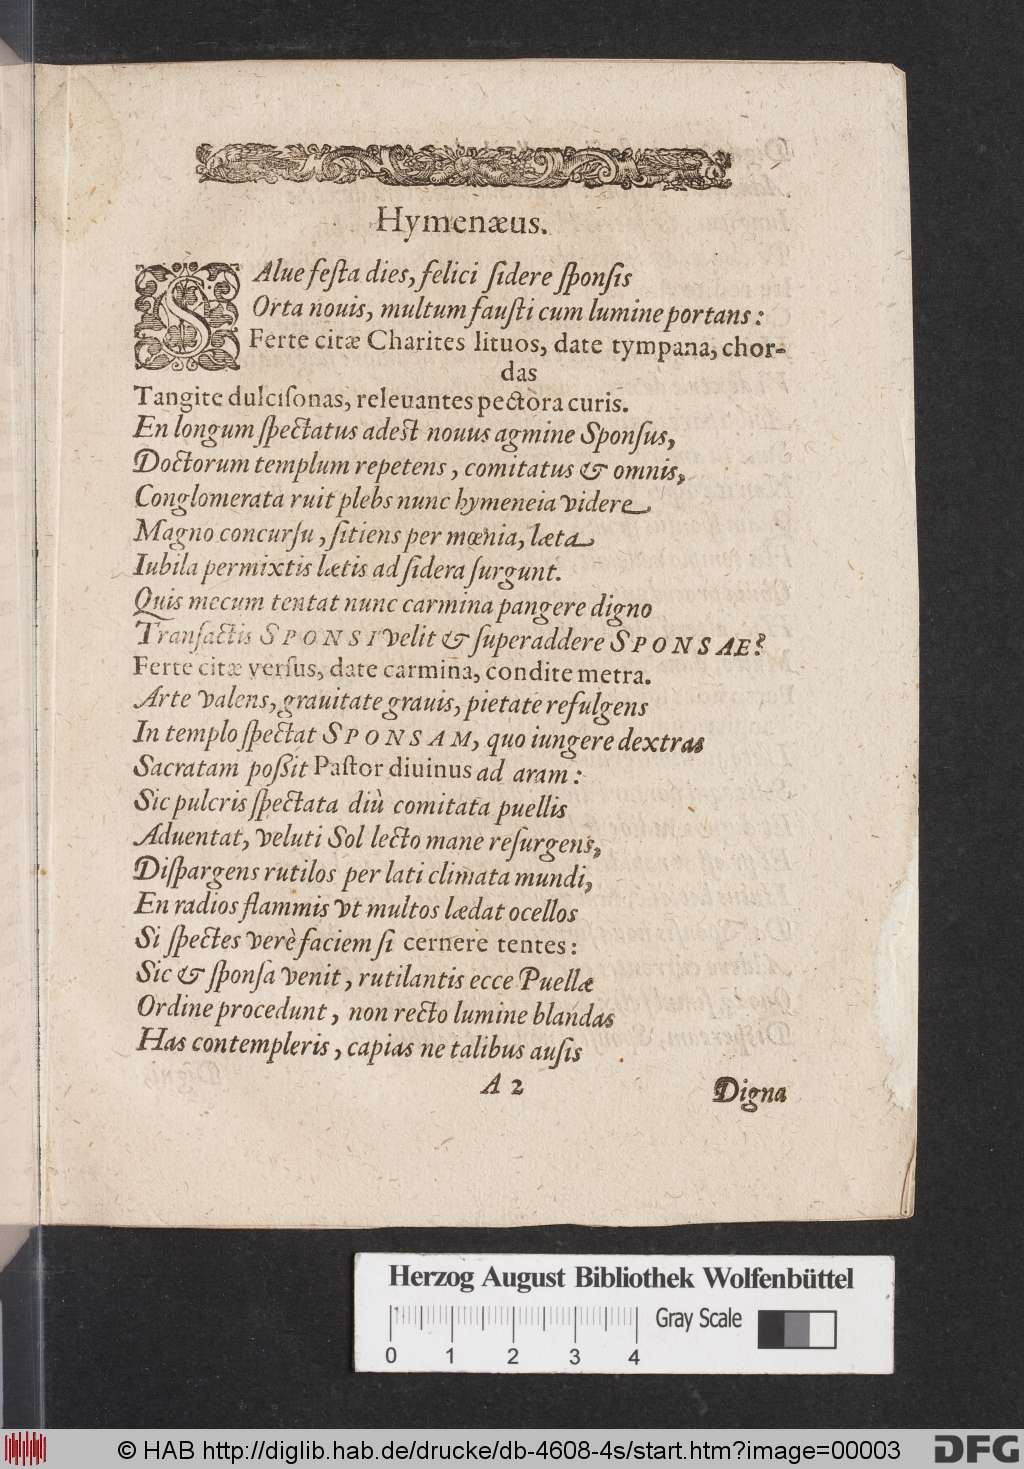 Hymenæus.
SAlue feſta dies, felici ſidere ſponſis
Orta nouis, multum fauſti cum lumine portans:
Ferte citæ Charites lituos, date tympana, chor-
das
Tangite dulciſonas, releuantes pectora curis.
En longum ſpectatus adest nouus agmine Sponſus,
Doctorum templum repetens, comitatus & omnis,
Conglomerata ruit plebs nunc hymeneia videre
Magno concurſu, ſitiens per mœnia, læta
Iubila permixtis lætis ad ſidera ſurgunt.
Quis mecum tentat nunc carmina pangere digno
Tranſactis SPONSI velit & ſuperaddere SPONSAE?
Ferte citæ verſus, date carmina, condite metra.
Arte valens, grauitate grauis, pietate refulgens
In templo ſpectat SPONSAM, quo iungere dextras
Sacratam poßit Paſtor diuinus ad aram:
Sic pulcris ſpectata diù comitata puellis
Aduentat, veluti Sol lecto mane reſurgens,
Diſpargens rutilos per lati climata mundi,
En radios flammis vt multos lædat ocellos
Si ſpectes verè faciem ſi cernere tentes:
Sic & ſponſa venit, rutilantis ecce Puellæ
Ordine procedunt, non recto lumine blandas
Has contempleris, capias ne talibus auſis
A 2
Digna
Herzog August Bibliothek Wolfenbüttel
Gray Scale
0 1 2 3 4
© HAB http://diglib.hab.de/drucke/db-4608-4s/start.htm?image=00003
DFG